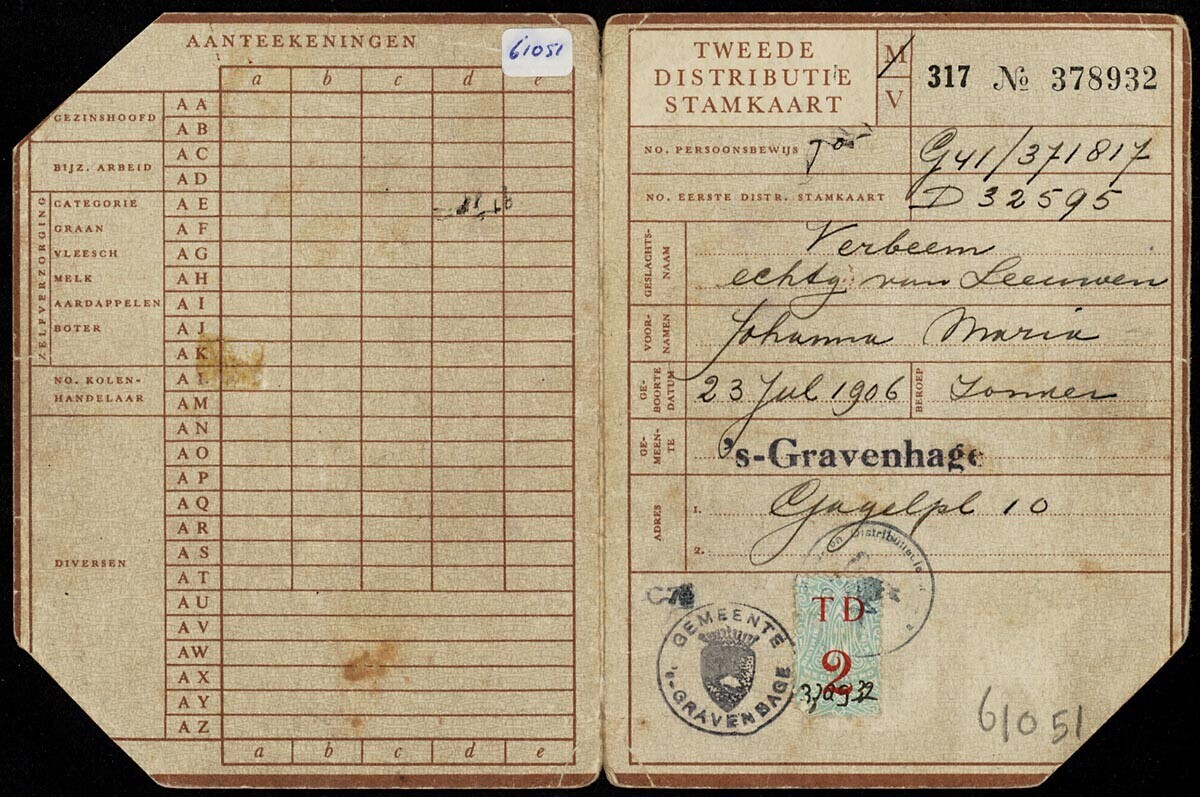 AANTEEKENINGEN
61051
a b c d e
GEZINSHOOFD
AA
AB
BIJZ. ARBEID
AC
AD
ZELFVERZORGING
CATEGORIE AE
GRAAN AF
VLEESCH AG
MELK AH
AARDAPPELEN AI
BOTER AJ
AK
NO. KOLEN-
HANDELAAR
AL
AM
AN
AO
AP
AQ
AR
AS
DIVERSEN
AT
AU
AV
AW
AX
AY
AZ
a b c d e
TWEEDE
DISTRIBUTIE
STAMKAART
M
V
317 No 378932
NO. PERSOONSBEWIJS G41/371817
NO. EERSTE DISTR. STAMKAART D 32595
GESLACHTS-
NAAM
Verbeem
echtg. van Leeuwen
VOOR-
NAMEN
Johanna Maria
GE-
BOORTE
DATUM
23 Jul 1906
BEROEP
Zonder
GE-
MEEN-
TE
's-Gravenhage
ADRES
1. Gagelpl 10
2.
Distributie
C7
GEMEENTE
's-GRAVENHAGE
TD
2
61051